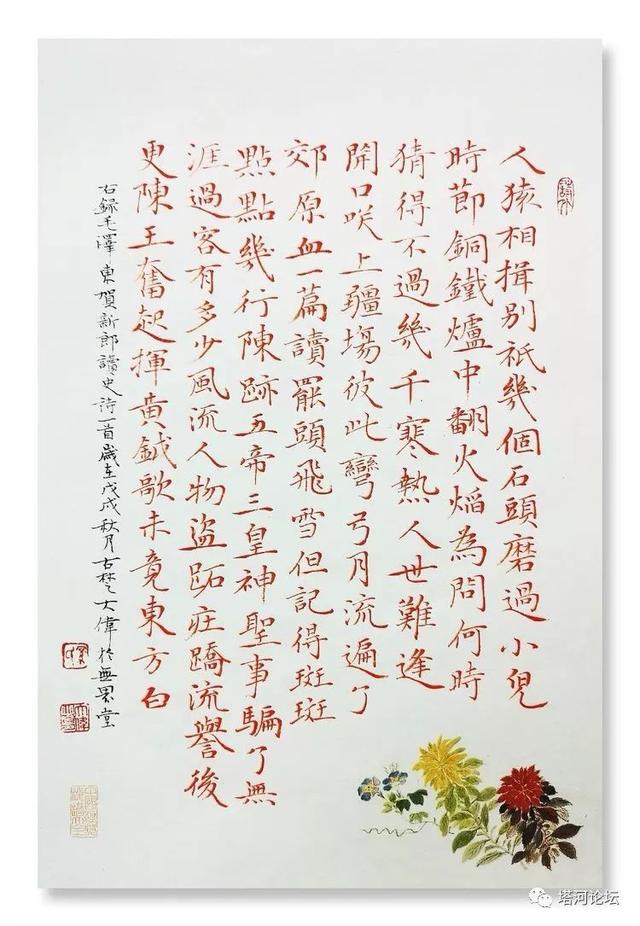 人猿相揖別祇幾個石頭磨過小兒
時節銅鐵爐中翻火焰為問何時
猜得不過幾千寒熱人世難逢
開口咲上疆場彼此彎弓月流遍了
郊原血一篇讀罷頭飛雪但記得斑斑
點點幾行陳跡五帝三皇神聖事騙了無
涯過客有多少風流人物盜跖庄蹻流譽後
更陳王奮起揮黃鉞歌未竟東方白
右録毛澤東賀新郎讀史詩一首歲在戊戌秋月古楚大偉於無畏堂
塔河论坛